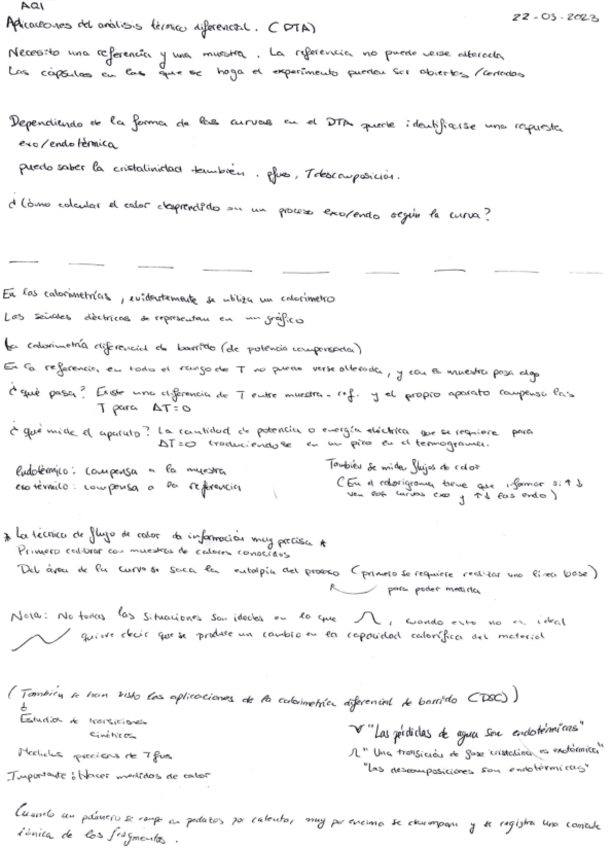 AQI
22-03-2023
Aplicaciones del análisis térmico diferencial. (DTA)
Necesito una referencia y una muestra. La referencia no puede verse alterada
Las cápsulas en las que se haga el experimento pueden ser abiertas / cerradas
Dependiendo de la forma de las curvas en el DTA puede identificarse una respuesta
exo/endotérmica
puedo saber la cristalinidad también, pfus, Tdescomposición.
¿Cómo calcular el calor desprendido en un proceso exo/endo según la curva?
En las calorimetrías, evidentemente se utiliza un calorímetro
Las señales eléctricas se representan en un gráfico
La calorimetría diferencial de barrido (de potencia compensada)
En la referencia, en todo el rango de T no puede verse alterada, y con la muestra pasa algo
¿qué pasa? Existe una diferencia de T entre muestra-ref. y el propio aparato compensa las
T para ΔT=0
¿qué mide el aparato? La cantidad de potencia o energía eléctrica que se requiere para
ΔT=0 traduciéndose en un pico en el termograma.
Endotérmico: compensa a la muestra
exotérmico: compensa a la referencia
También se miden flujos de calor
(En el calorigrama tiene que informar si ↑↓
ven las curvas exo y ↑↓ las endo)
* La técnica de flujo de calor da información muy precisa *
Primero calibrar con muestras de calores conocidos
Del área de la curva se saca la entalpía del proceso (primero se requiere realizar una línea base)
para poder medirla
Nota: No todas las situaciones son ideales en lo que , cuando esto no es ideal
quiere decir que se produce un cambio en la capacidad calorífica del material
(También se han visto las aplicaciones de la calorimetría diferencial de barrido (DSC))
Estudio de transiciones
cinéticas
Medidas precisas de Tfus
Importante: Hacer medidas de calor
"Las pérdidas de agua son endotérmicas"
"Una transición de fase cristalina es exotérmica"
"Las descomposiciones son endotérmicas"
Cuando un polímero se rompe en pedazos por calentar, muy por encima se descompone y se registra una corriente
iónica de los fragmentos.